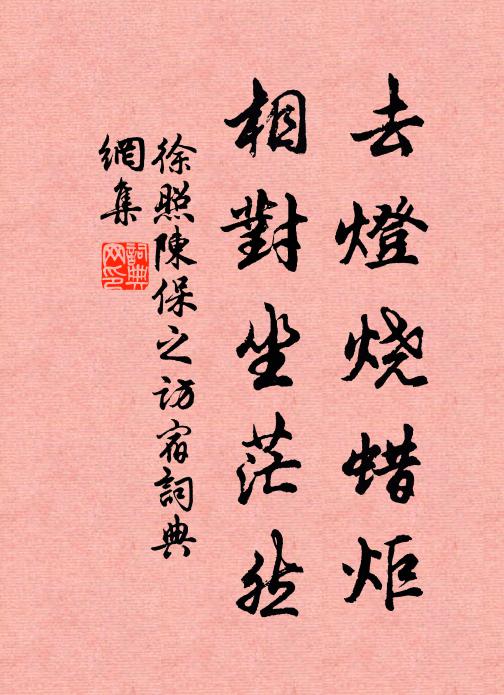 去燈烧蜡炬
相對坐茫然
徐照陳保之访宿詞典
網集
詞典網印